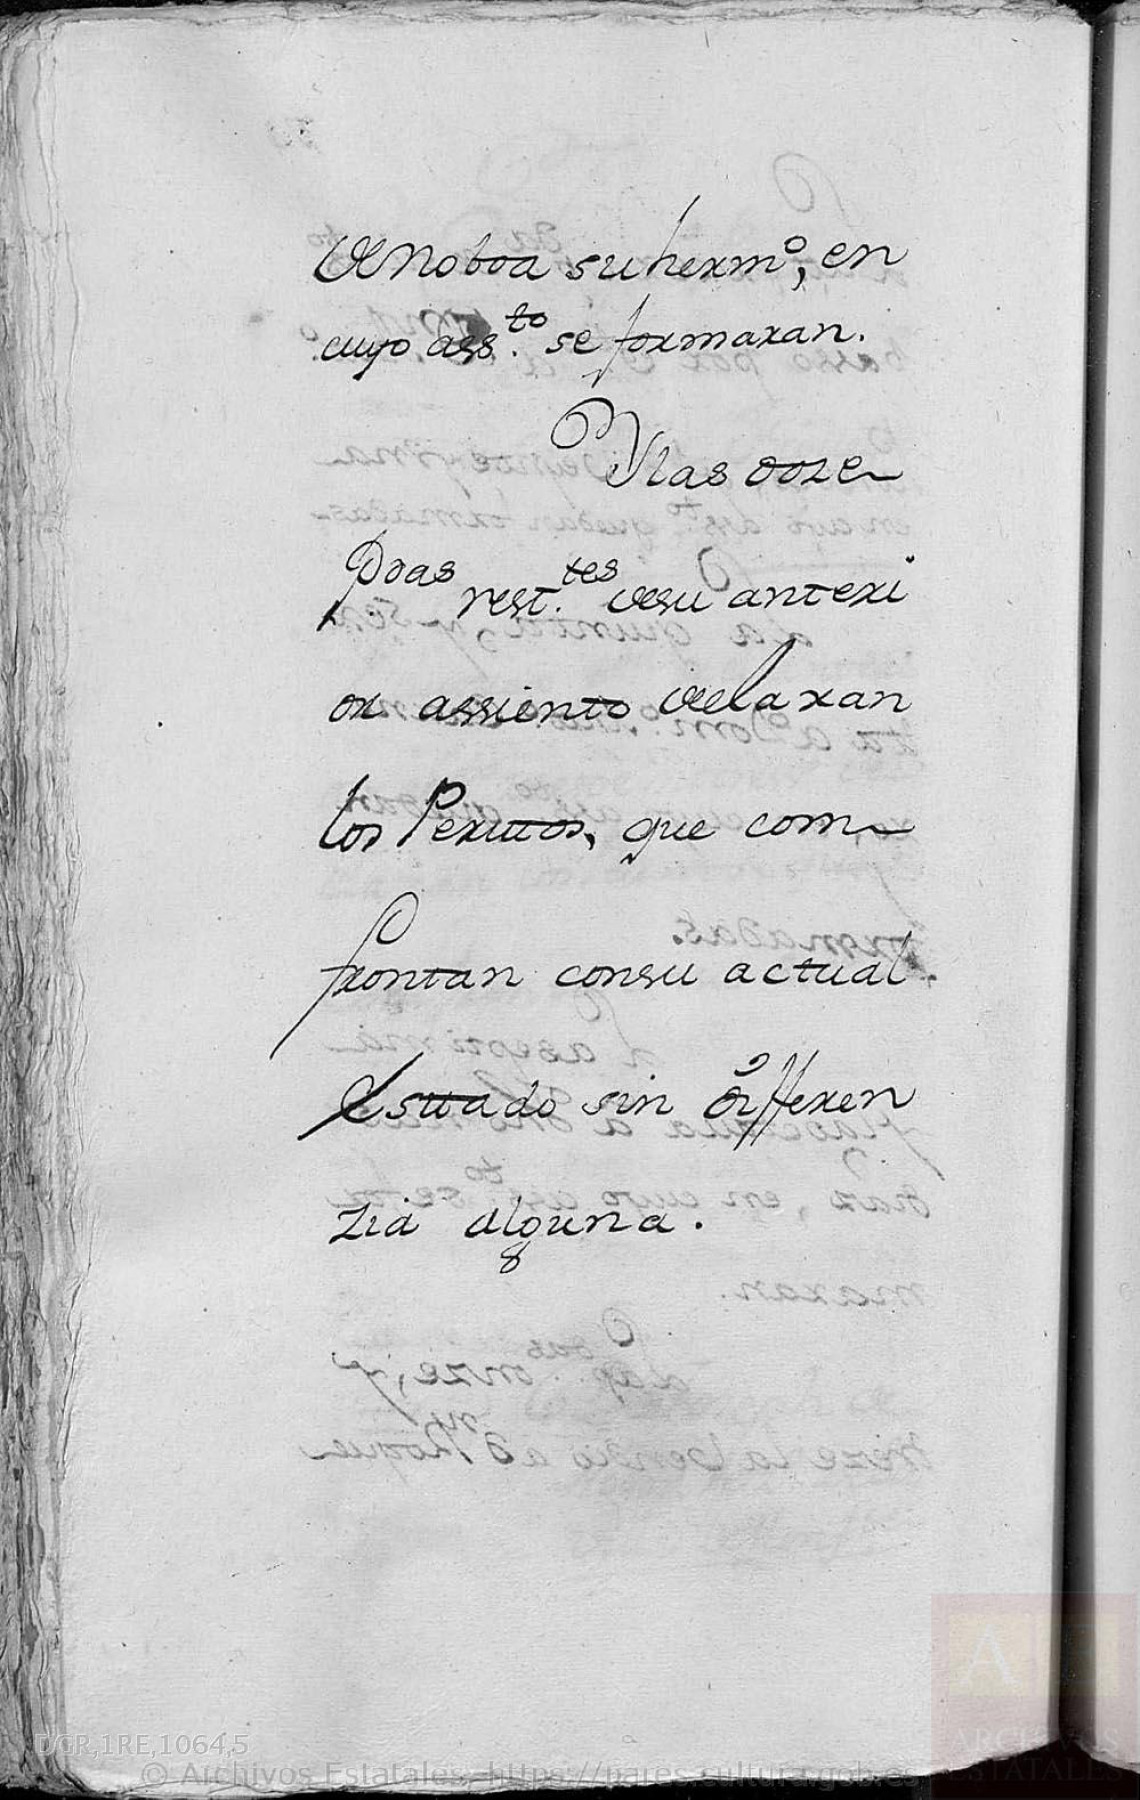 de Noboa su herm.º, en
cuyo ass.to se formaran.
Ylas doze
p.das rest.tes de su anteri
or assiento declaran
los Peritos, que com
frontan consu actual
Estado sin differen
zia alguna.
DGR,1RE,1064,5
© Archivos Estatales, https://pares.cultura.gob.es
ARCHIVOS
ESTATALES